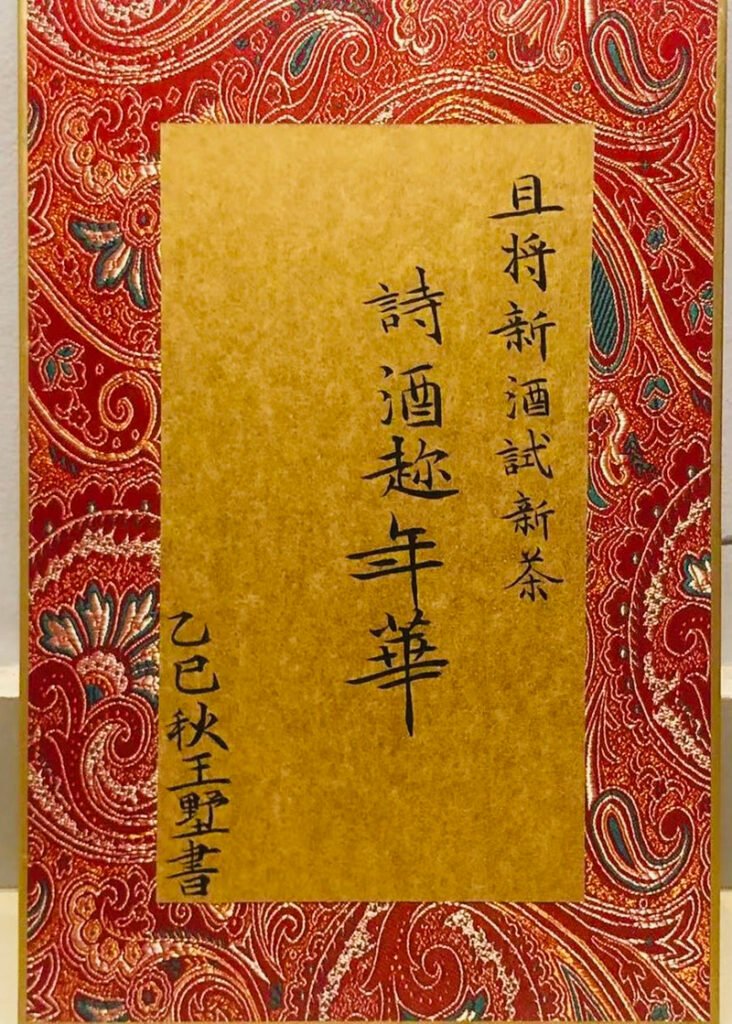 且将新酒試新茶
詩酒趂年華
乙巳秋王墅書